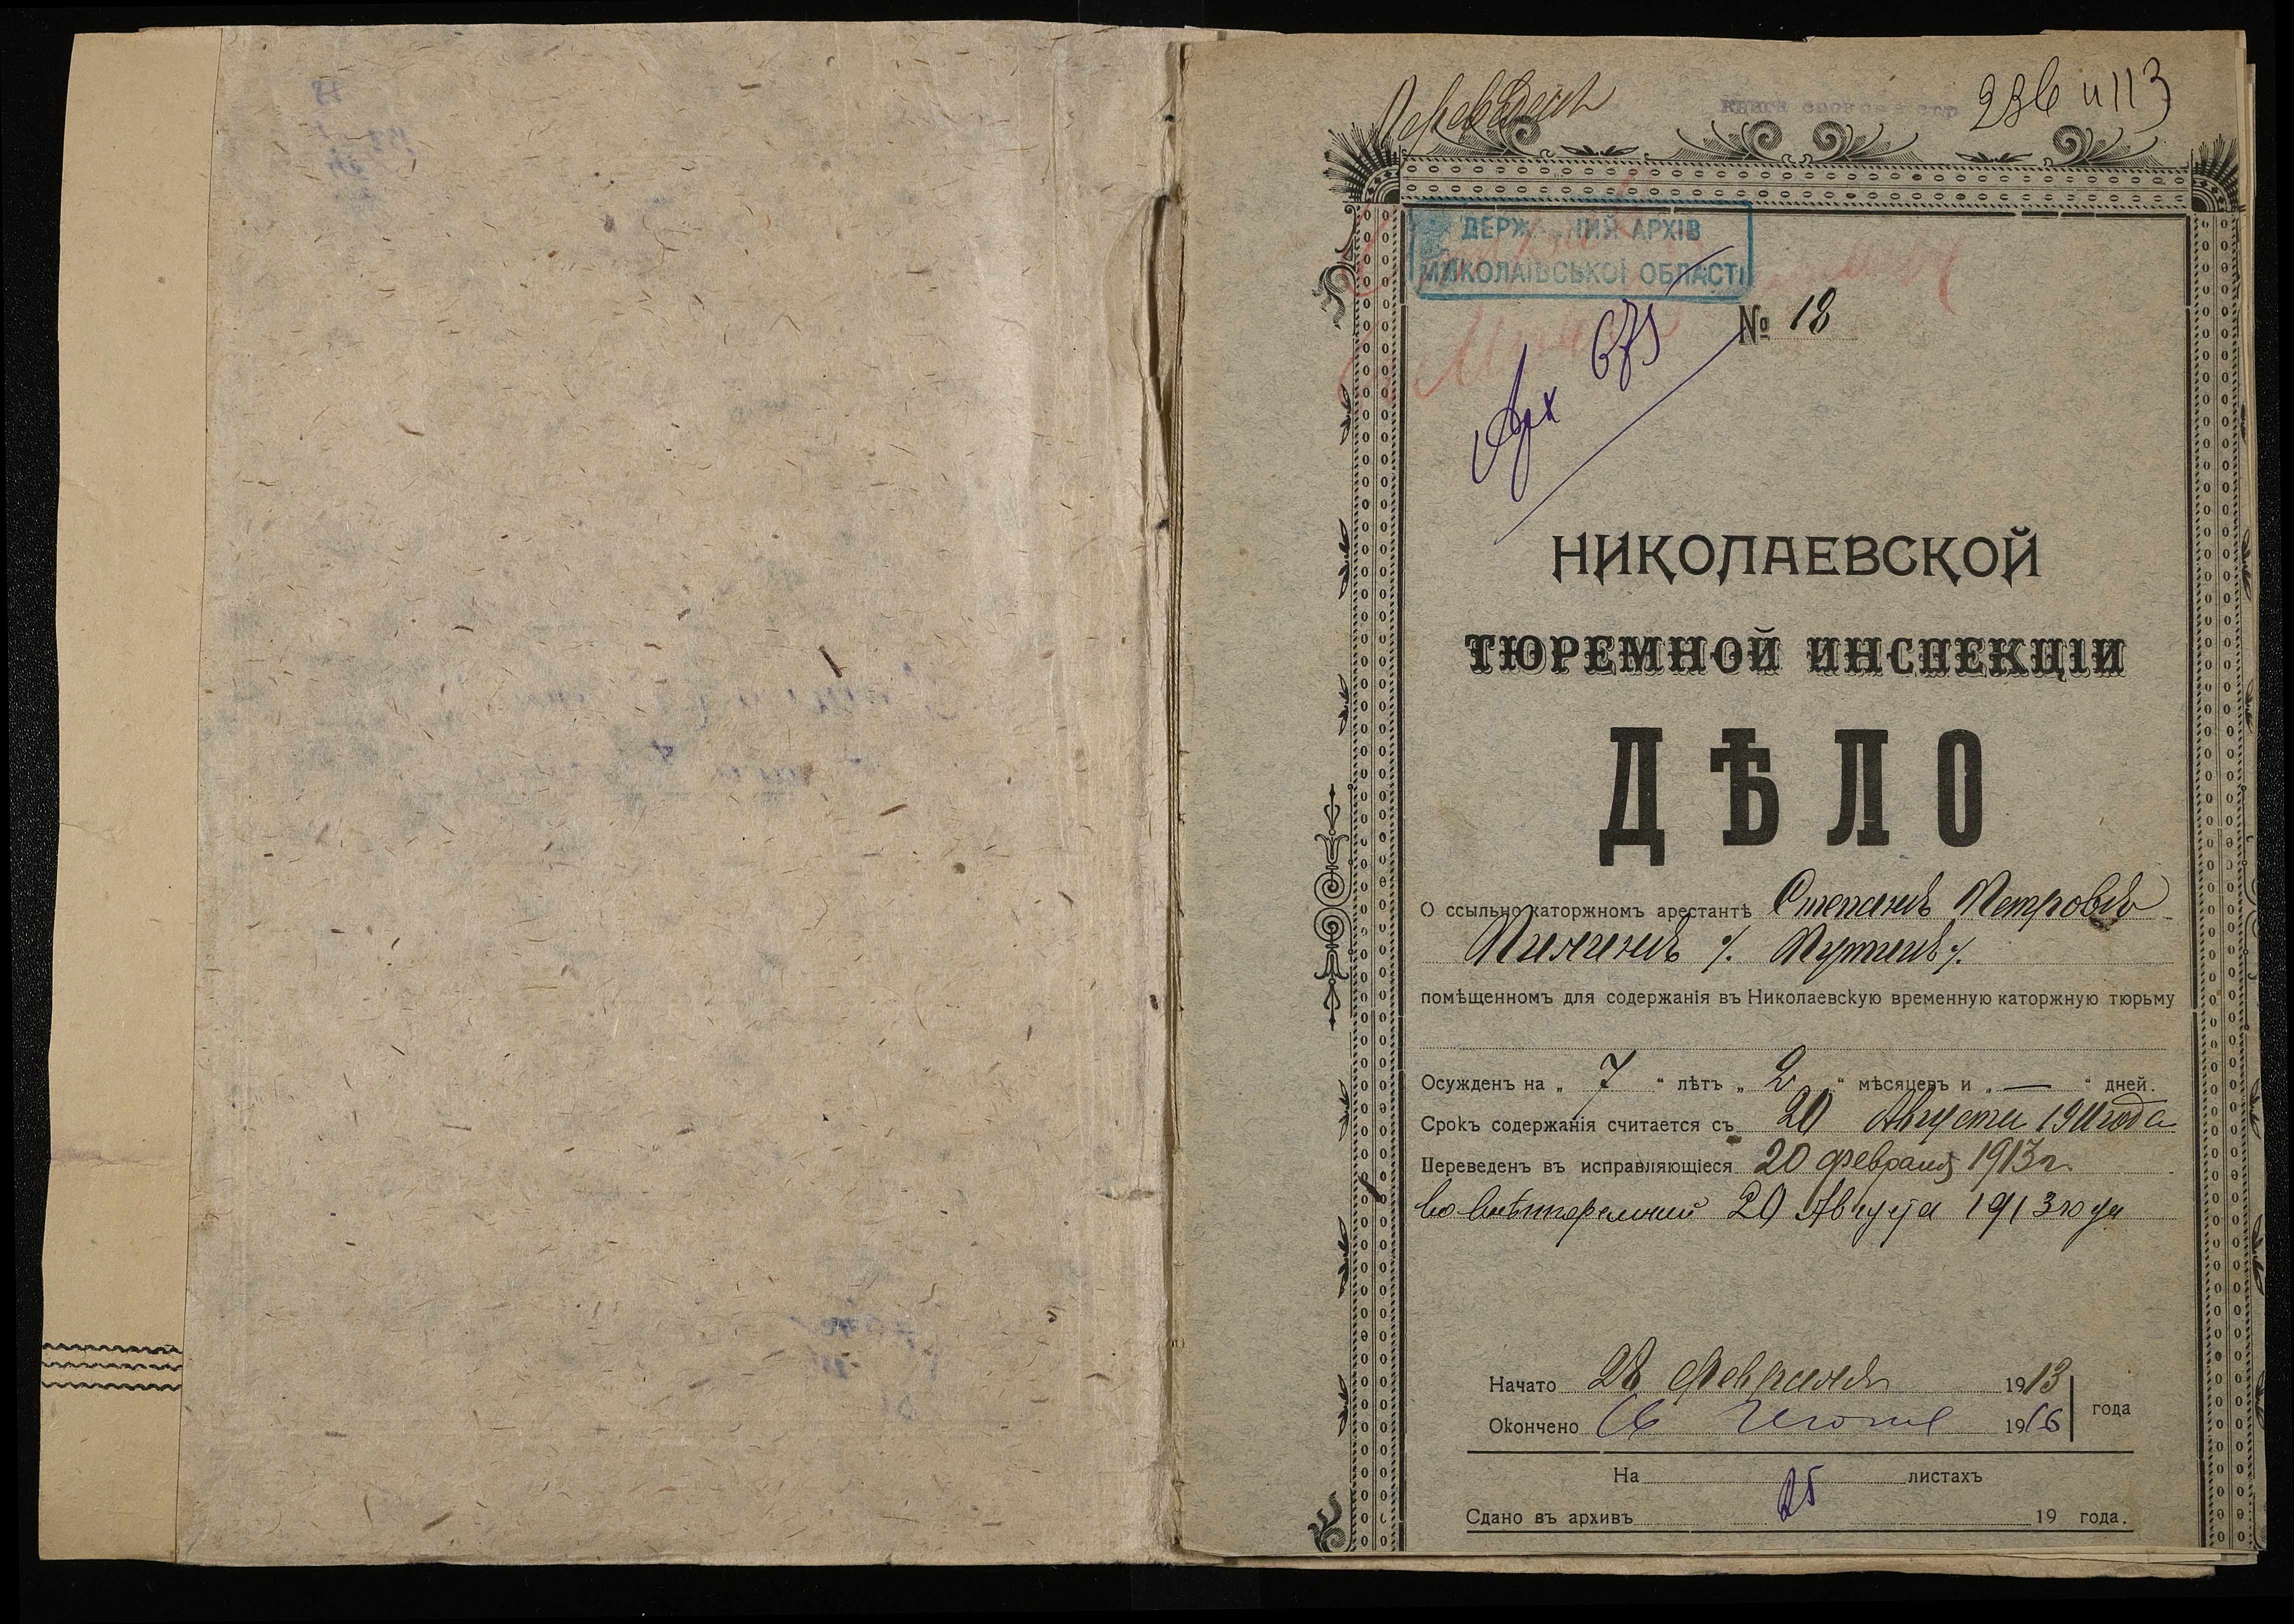 Переведенъ
236 и 113
ДЕРЖАВНИЙ АРХІВ
МИКОЛАЇВСЬКОЇ ОБЛАСТІ
№ 18
Арх 675
НИКОЛАЕВСКОЙ
ТЮРЕМНОЙ ИНСПЕКЦІИ
ДѢЛО
О ссыльно каторжномъ арестантѣ Степанѣ Петровѣ
помѣщенномъ для содержанія въ Николаевскую временную каторжную тюрьму
Осужденъ на „ 7 “ лѣтъ „ 2 “ мѣсяцевъ и „ — “ дней.
Срокъ содержанія считается съ 20 Августа 1911 года
Переведенъ въ исправляющіеся 20 февраля 1913 г.
во внѣтюремный 20 Августа 1913 года
Начато 28 Февраля 1913
Окончено 16 1916 года
На 25 листахъ
Сдано въ архивъ 19 года.